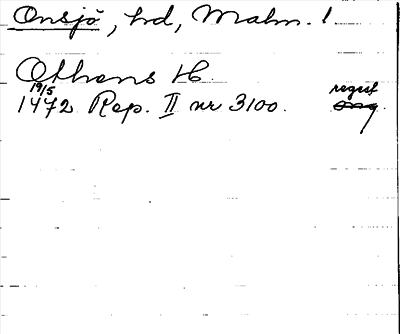 Onsjö, hd, Malm. l
Othens H.
19/5
1472 Rep. II nr 3100. regest
orig